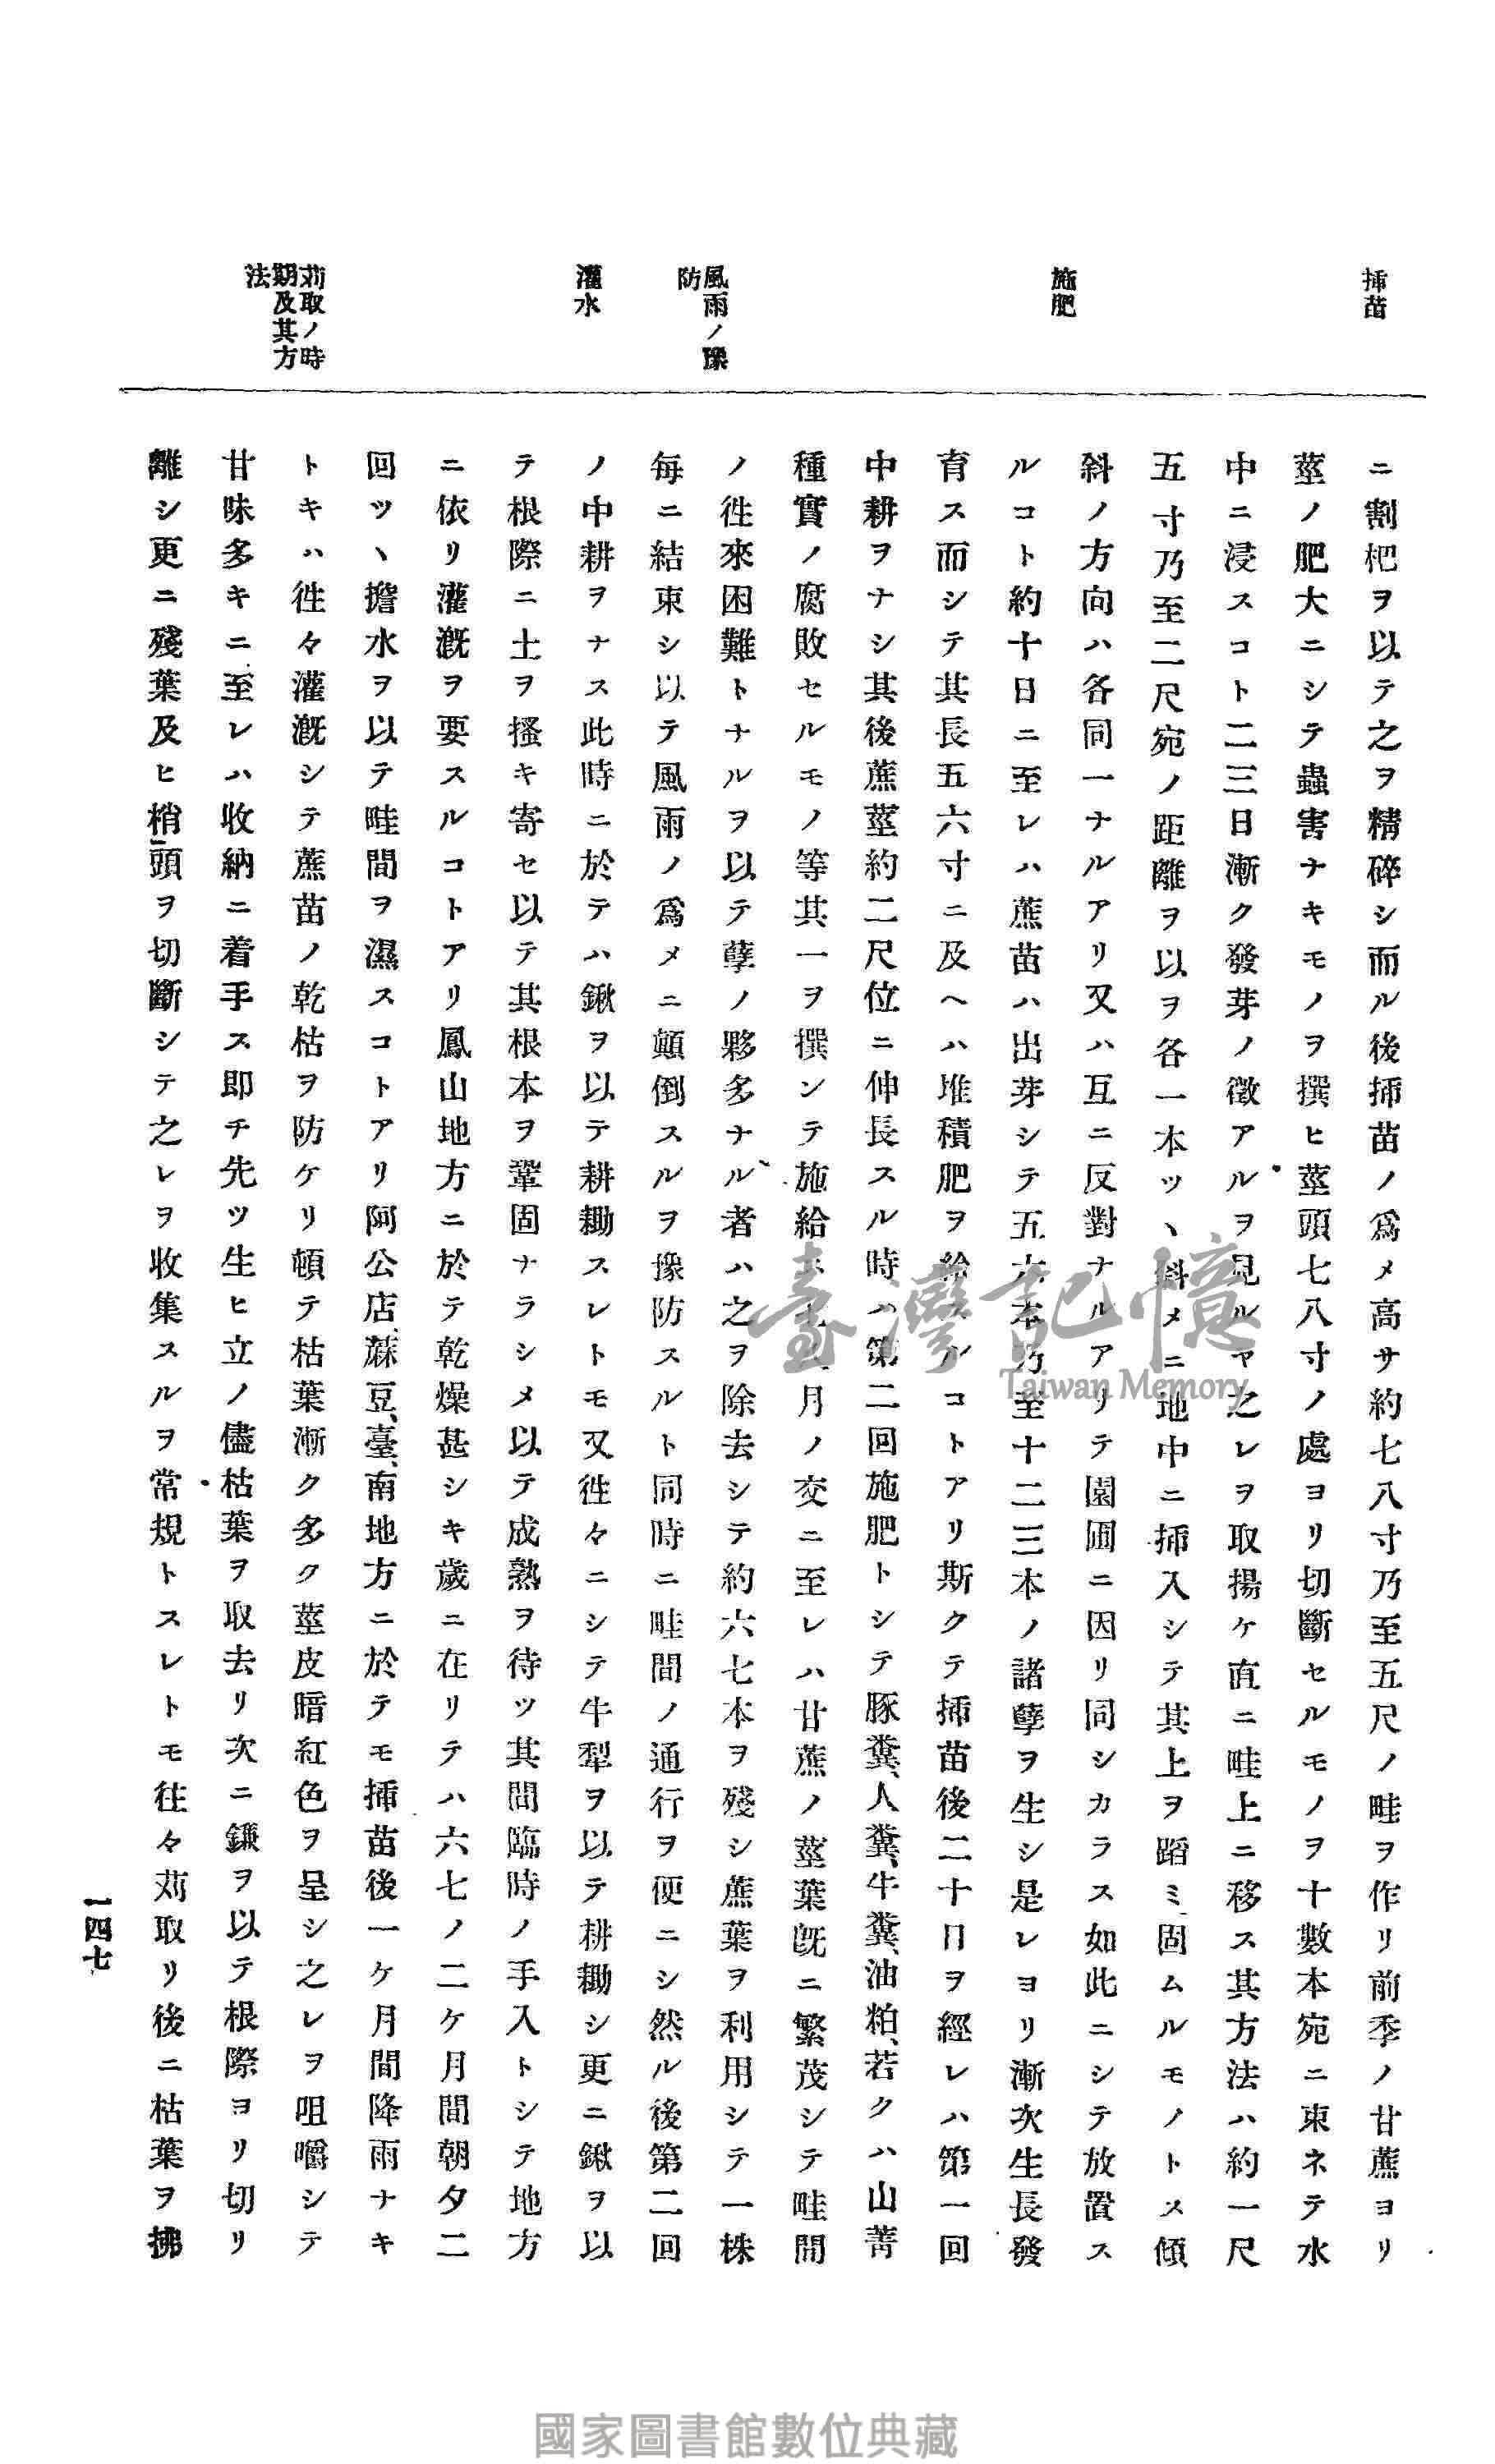 挿苗
施肥
風雨ノ豫
防
灌水
苅取ノ時
期及其方
法
ニ割杷ヲ以テ之ヲ精碎シ而ル後挿苗ノ爲メ高サ約七八寸乃至五尺ノ畦ヲ作リ前季ノ甘蔗ヨリ
莖ノ肥大ニシテ蟲害ナキモノヲ撰ヒ莖頭七八寸ノ處ヨリ切斷セルモノヲ十數本宛ニ束ネテ水
中ニ浸スコト二三日漸ク發芽ノ徵アルヲ見ルヤ之レヲ取揚ケ直ニ畦上ニ移ス其方法ハ約一尺
五寸乃至二尺宛ノ距離ヲ以ヲ各一本ツヽ斜メニ地中ニ挿入シテ其上ヲ蹈ミ固ムルモノトス傾
斜ノ方向ハ各同一ナルアリ又ハ互ニ反對ナルアリテ園圃ニ因リ同シカラス如此ニシテ放置ス
ルコト約十日ニ至レハ蔗苗ハ出芽シテ五六本乃至十二三本ノ諸孽ヲ生シ是レヨリ漸次生長發
育ス而シテ其長五六寸ニ及ヘハ堆積肥ヲ給スルコトアリ斯クテ挿苗後二十日ヲ經レハ第一回
中耕ヲナシ其後蔗莖約二尺位ニ伸長スル時ハ第二回施肥トシテ豚糞、人糞、牛糞、油粕、若クハ山菁
種實ノ腐敗セルモノ等其一ヲ撰ンテ施給ス七八月ノ交ニ至レハ甘蔗ノ莖葉既ニ繁茂シテ畦間
ノ徃來困難トナルヲ以テ孽ノ夥多ナル者ハ之ヲ除去シテ約六七本ヲ殘シ蔗葉ヲ利用シテ一株
每ニ結束シ以テ風雨ノ爲メニ顚倒スルヲ豫防スルト同時ニ畦間ノ通行ヲ便ニシ然ル後第二回
ノ中耕ヲナス此時ニ於テハ鍬ヲ以テ耕耡スレトモ又徃々ニシテ牛犁ヲ以テ耕耡シ更ニ鍬ヲ以
テ根際ニ土ヲ搔キ寄セ以テ其根本ヲ鞏固ナラシメ以テ成熟ヲ待ツ其間臨時ノ手入トシテ地方
ニ依リ灌漑ヲ要スルコトアリ鳳山地方ニ於テ乾燥甚シキ歲ニ在リテハ六七ノ二ケ月間朝夕二
回ツヽ擔水ヲ以テ畦間ヲ濕スコトアリ阿公店、蔴豆、臺南地方ニ於テモ挿苗後一ケ月間降雨ナキ
トキハ徃々灌漑シテ蔗苗ノ乾枯ヲ防ケリ頓テ枯葉漸ク多ク莖皮暗紅色ヲ呈シ之レヲ咀嚼シテ
甘味多キニ至レハ收納ニ着手ス即チ先ツ生ヒ立ノ儘枯葉ヲ取去リ次ニ鎌ヲ以テ根際ヨリ切リ
離シ更ニ殘葉及ヒ梢頭ヲ切斷シテ之レヲ收集スルヲ常規トスレトモ往々苅取リ後ニ枯葉ヲ拂
一四七
臺灣記憶
Taiwan Memory
國家圖書館數位典藏